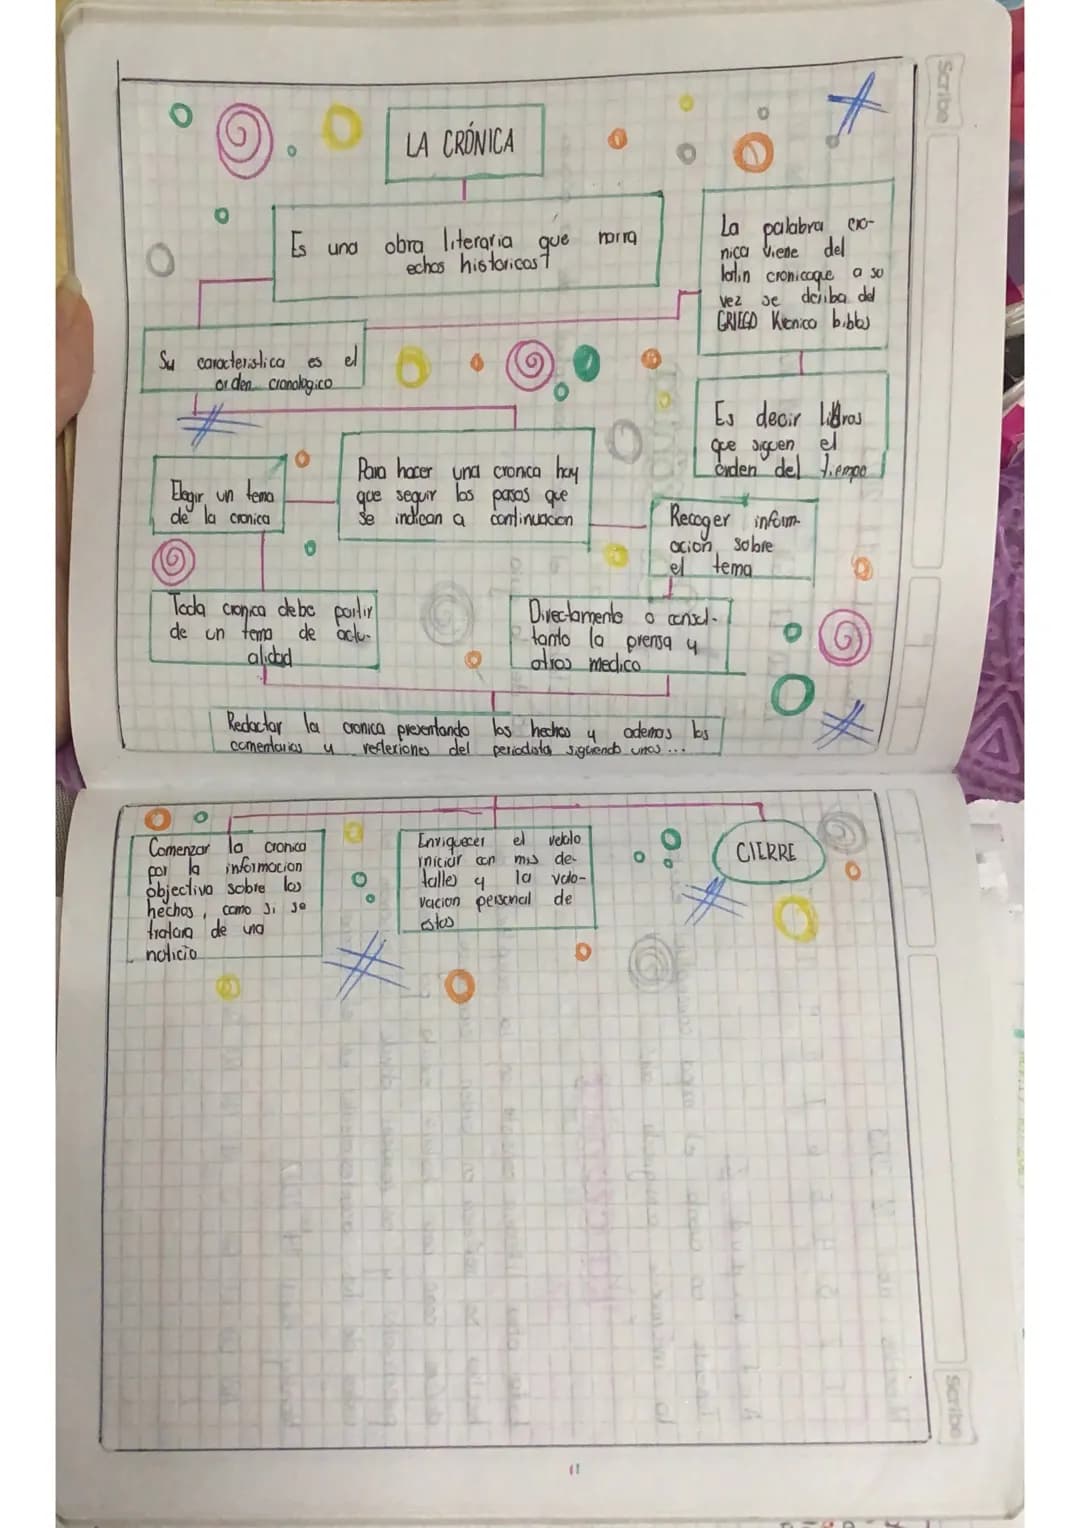 Scribe
LA CRÓNICA
Es una obra literaria que narra
echos historicos
La palabra cro-
nica viene del
latin cronicaque a su
vez se deriba del
GRIEGO Kronico bibbs
Su caracteristica es el
orden cronologico
Es decir libros
que siguen el
orden del tiempo
Elegir un tema
de la cronica
Para hacer una cronica hay
que seguir los pasos que
se indican a continuacion
Recoger inform-
acion sobre
el tema
Toda cronica debe partir
de un tema de actu-
alidad
Directamente o consul-
tanto la prensa y
otros medico
Redactar la cronica presentando los hechos y ademas los
comentarios y reflexiones del periodista siguiendo unos ...
Comenzar la cronica
por la informacion
objectiva sobre los
hechos, como si se
tratara de una
noticio
Enriquecer el
iniciar con mis de-
talles y la valo-
vacion personal de
estos
CIERRE
Scribe